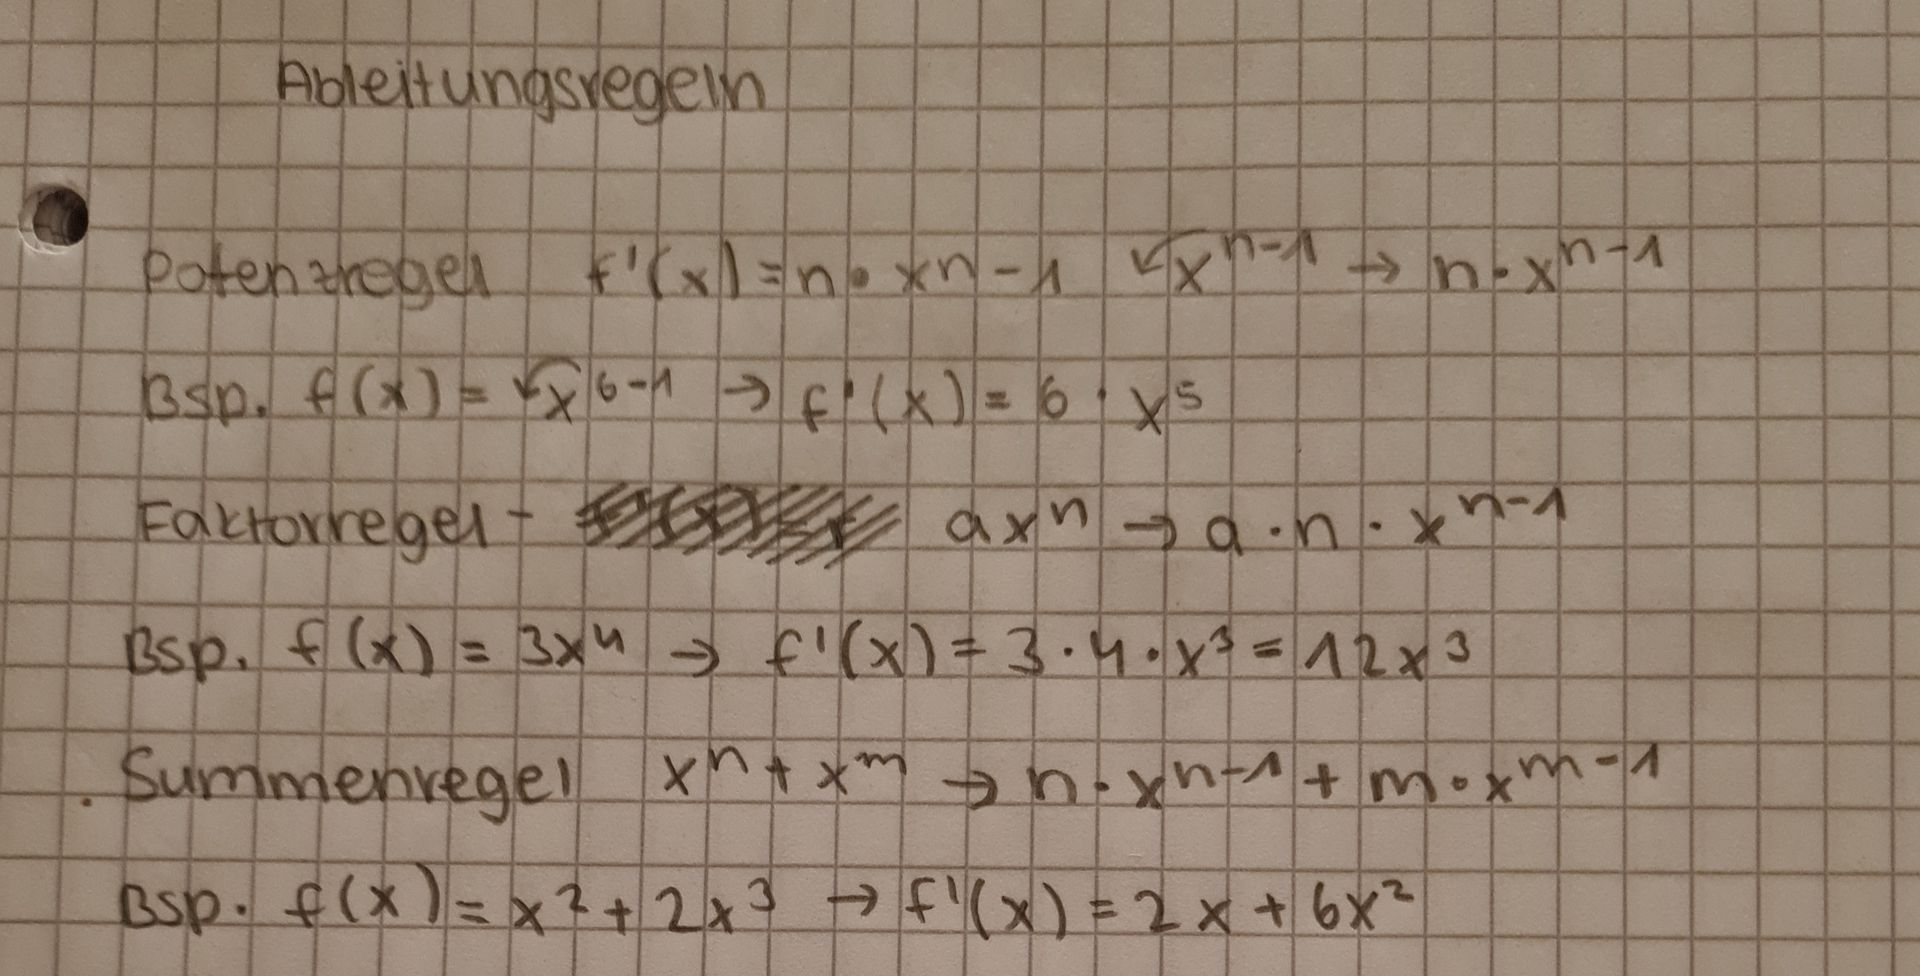 Ableitungsregeln
Potenzregel f'(x) = n • xn - 1 ↙x^n-1 → n · x^n-1
Bsp. f(x) = ↙x^6-1 → f'(x) = 6 · x^5
Faktorregel - ax^n → a · n · x^n-1
Bsp. f(x) = 3x^4 → f'(x) = 3 · 4 · x^3 = 12x^3
Summenregel x^n + x^m → n · x^n-1 + m · x^m-1
Bsp. f(x) = x^2 + 2x^3 → f'(x) = 2x + 6x^2